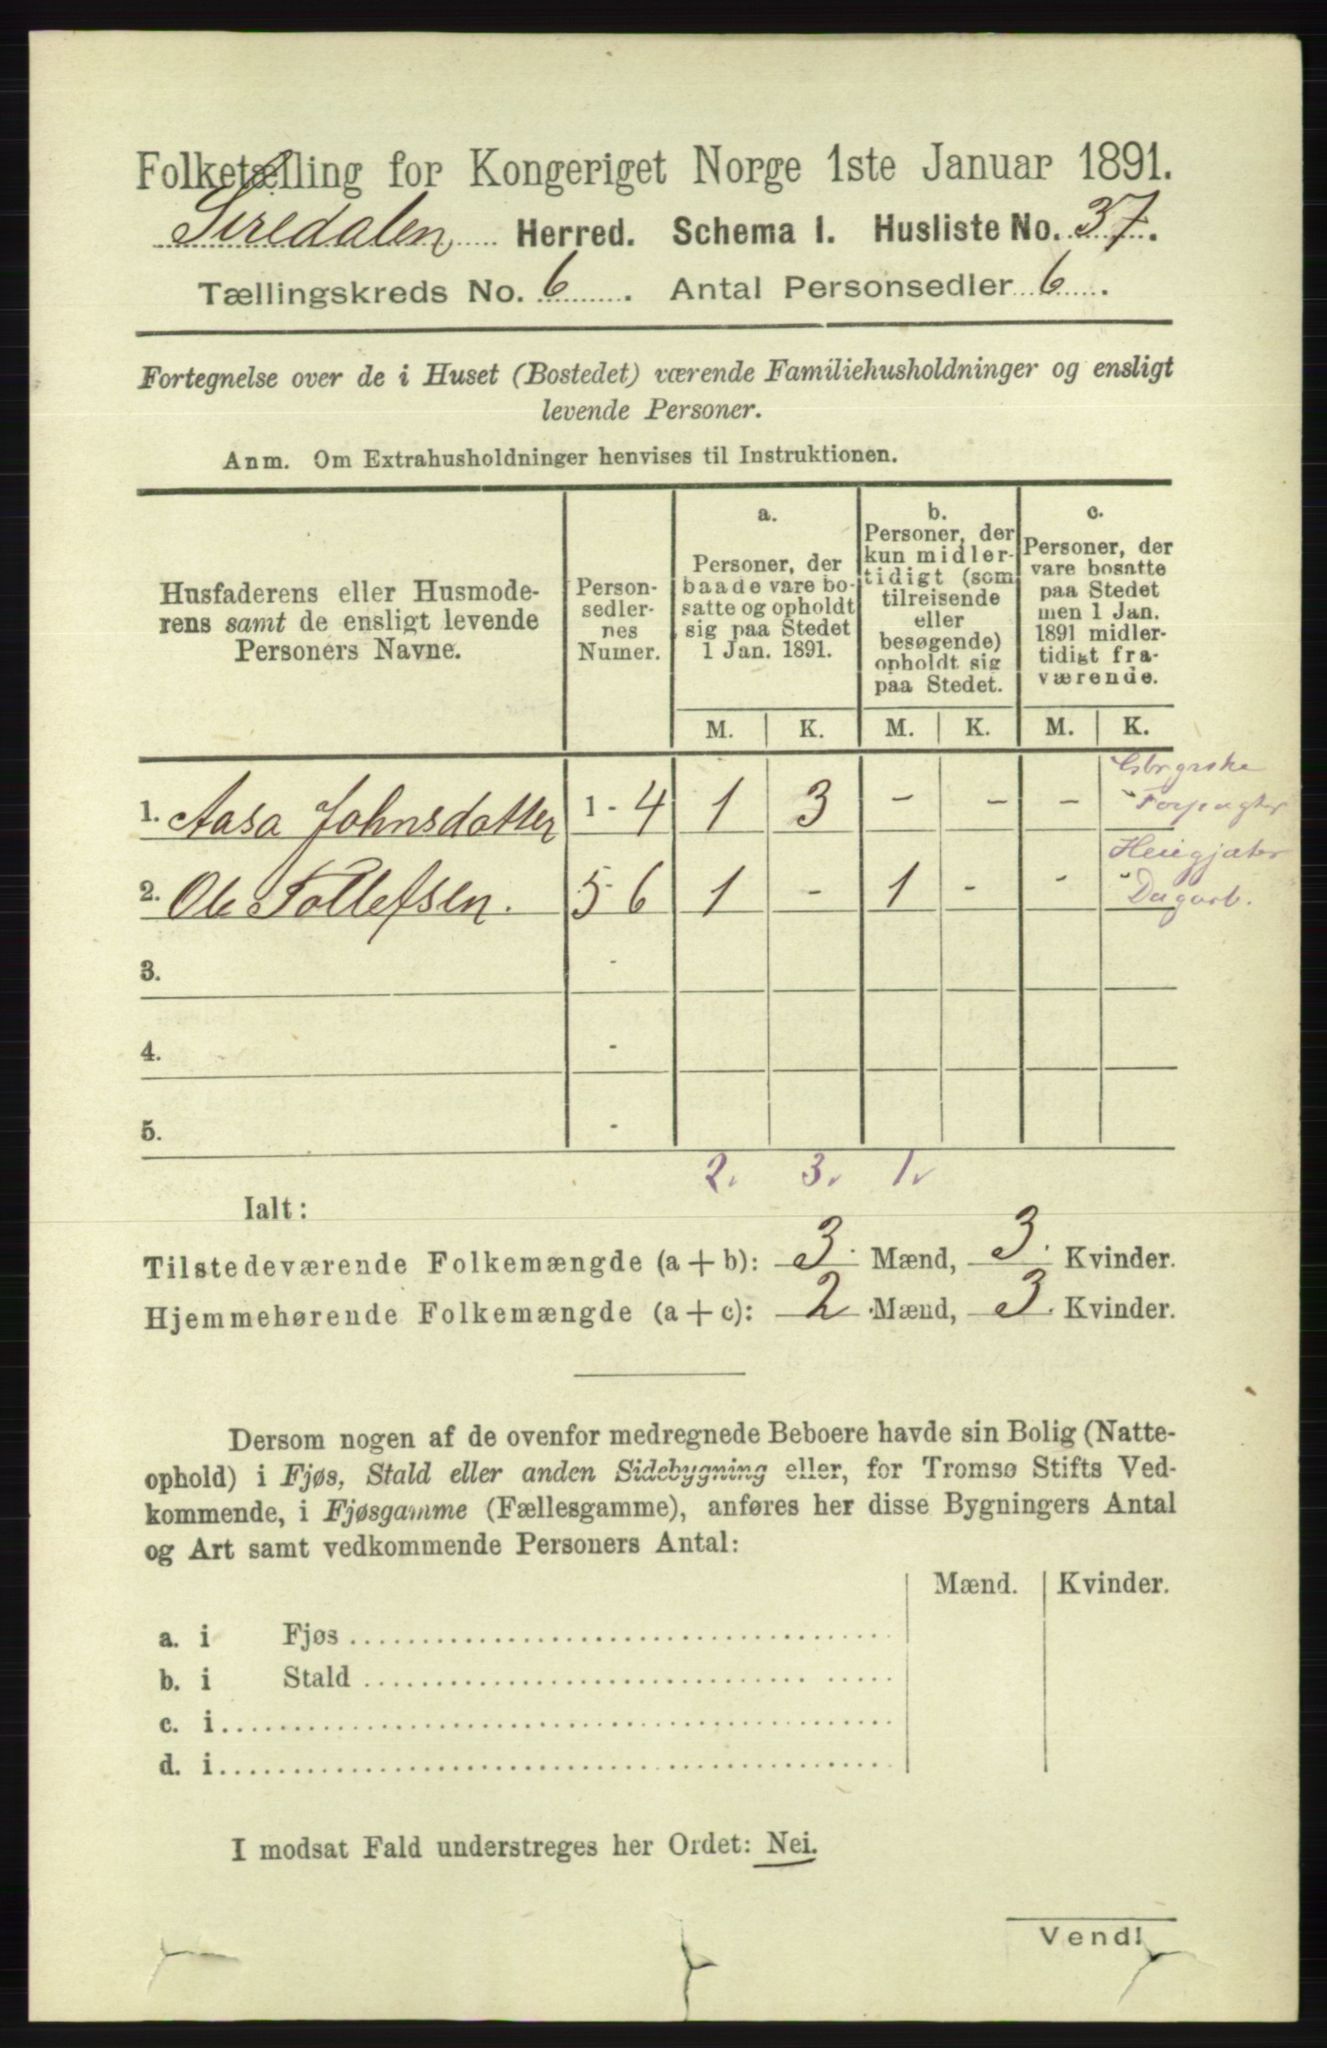 Folketælling for Kongeriget Norge 1ste Januar 1891.
Siredalen Herred. Schema I. Husliste No. 37.
Tællingskreds No. 6. Antal Personsedler 6.
Fortegnelse over de i Huset (Bostedet) værende Familiehusholdninger og ensligt
levende Personer.
Anm. Om Extrahusholdninger henvises til Instruktionen.
Husfaderens eller Husmode-
rens samt de ensligt levende
Personers Navne.
Person-
sedler-
nes
Numer.
a.
Personer, der
baade vare bo-
satte og opholdt
sig paa Stedet
1 Jan. 1891.
b.
Personer, der
kun midler-
tidigt (som
tilreisende
eller
besøgende)
opholdt sig
paa Stedet.
c.
Personer, der
vare bosatte
paa Stedet
men 1 Jan.
1891 midler-
tidigt fra-
værende.
M. K. M. K. M. K.
1. Aasa Johnsdatter 1 - 4 1 3 - - -
2. Ole Tollefsen. 5 - 6 1 - 1 - - Dagarb.
3. -
4. -
5. -
2. 3. 1.
Ialt:
Tilstedeværende Folkemængde (a + b): 3. Mænd, 3. Kvinder.
Hjemmehørende Folkemængde (a + c): 2. Mænd, 3. Kvinder.
Dersom nogen af de ovenfor medregnede Beboere havde sin Bolig (Natte-
ophold) i Fjøs, Stald eller anden Sidebygning eller, for Tromsø Stifts Ved-
kommende, i Fjøsgamme (Fællesgamme), anføres her disse Bygningers Antal
og Art samt vedkommende Personers Antal:
Mænd. Kvinder.
a. i Fjøs
b. i Stald
c. i
d. i
I modsat Fald understreges her Ordet: Nei.
Vend!